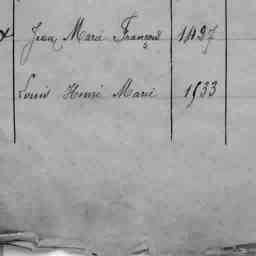 x Jean Marie François 1427
Louis Henri Marie 1533